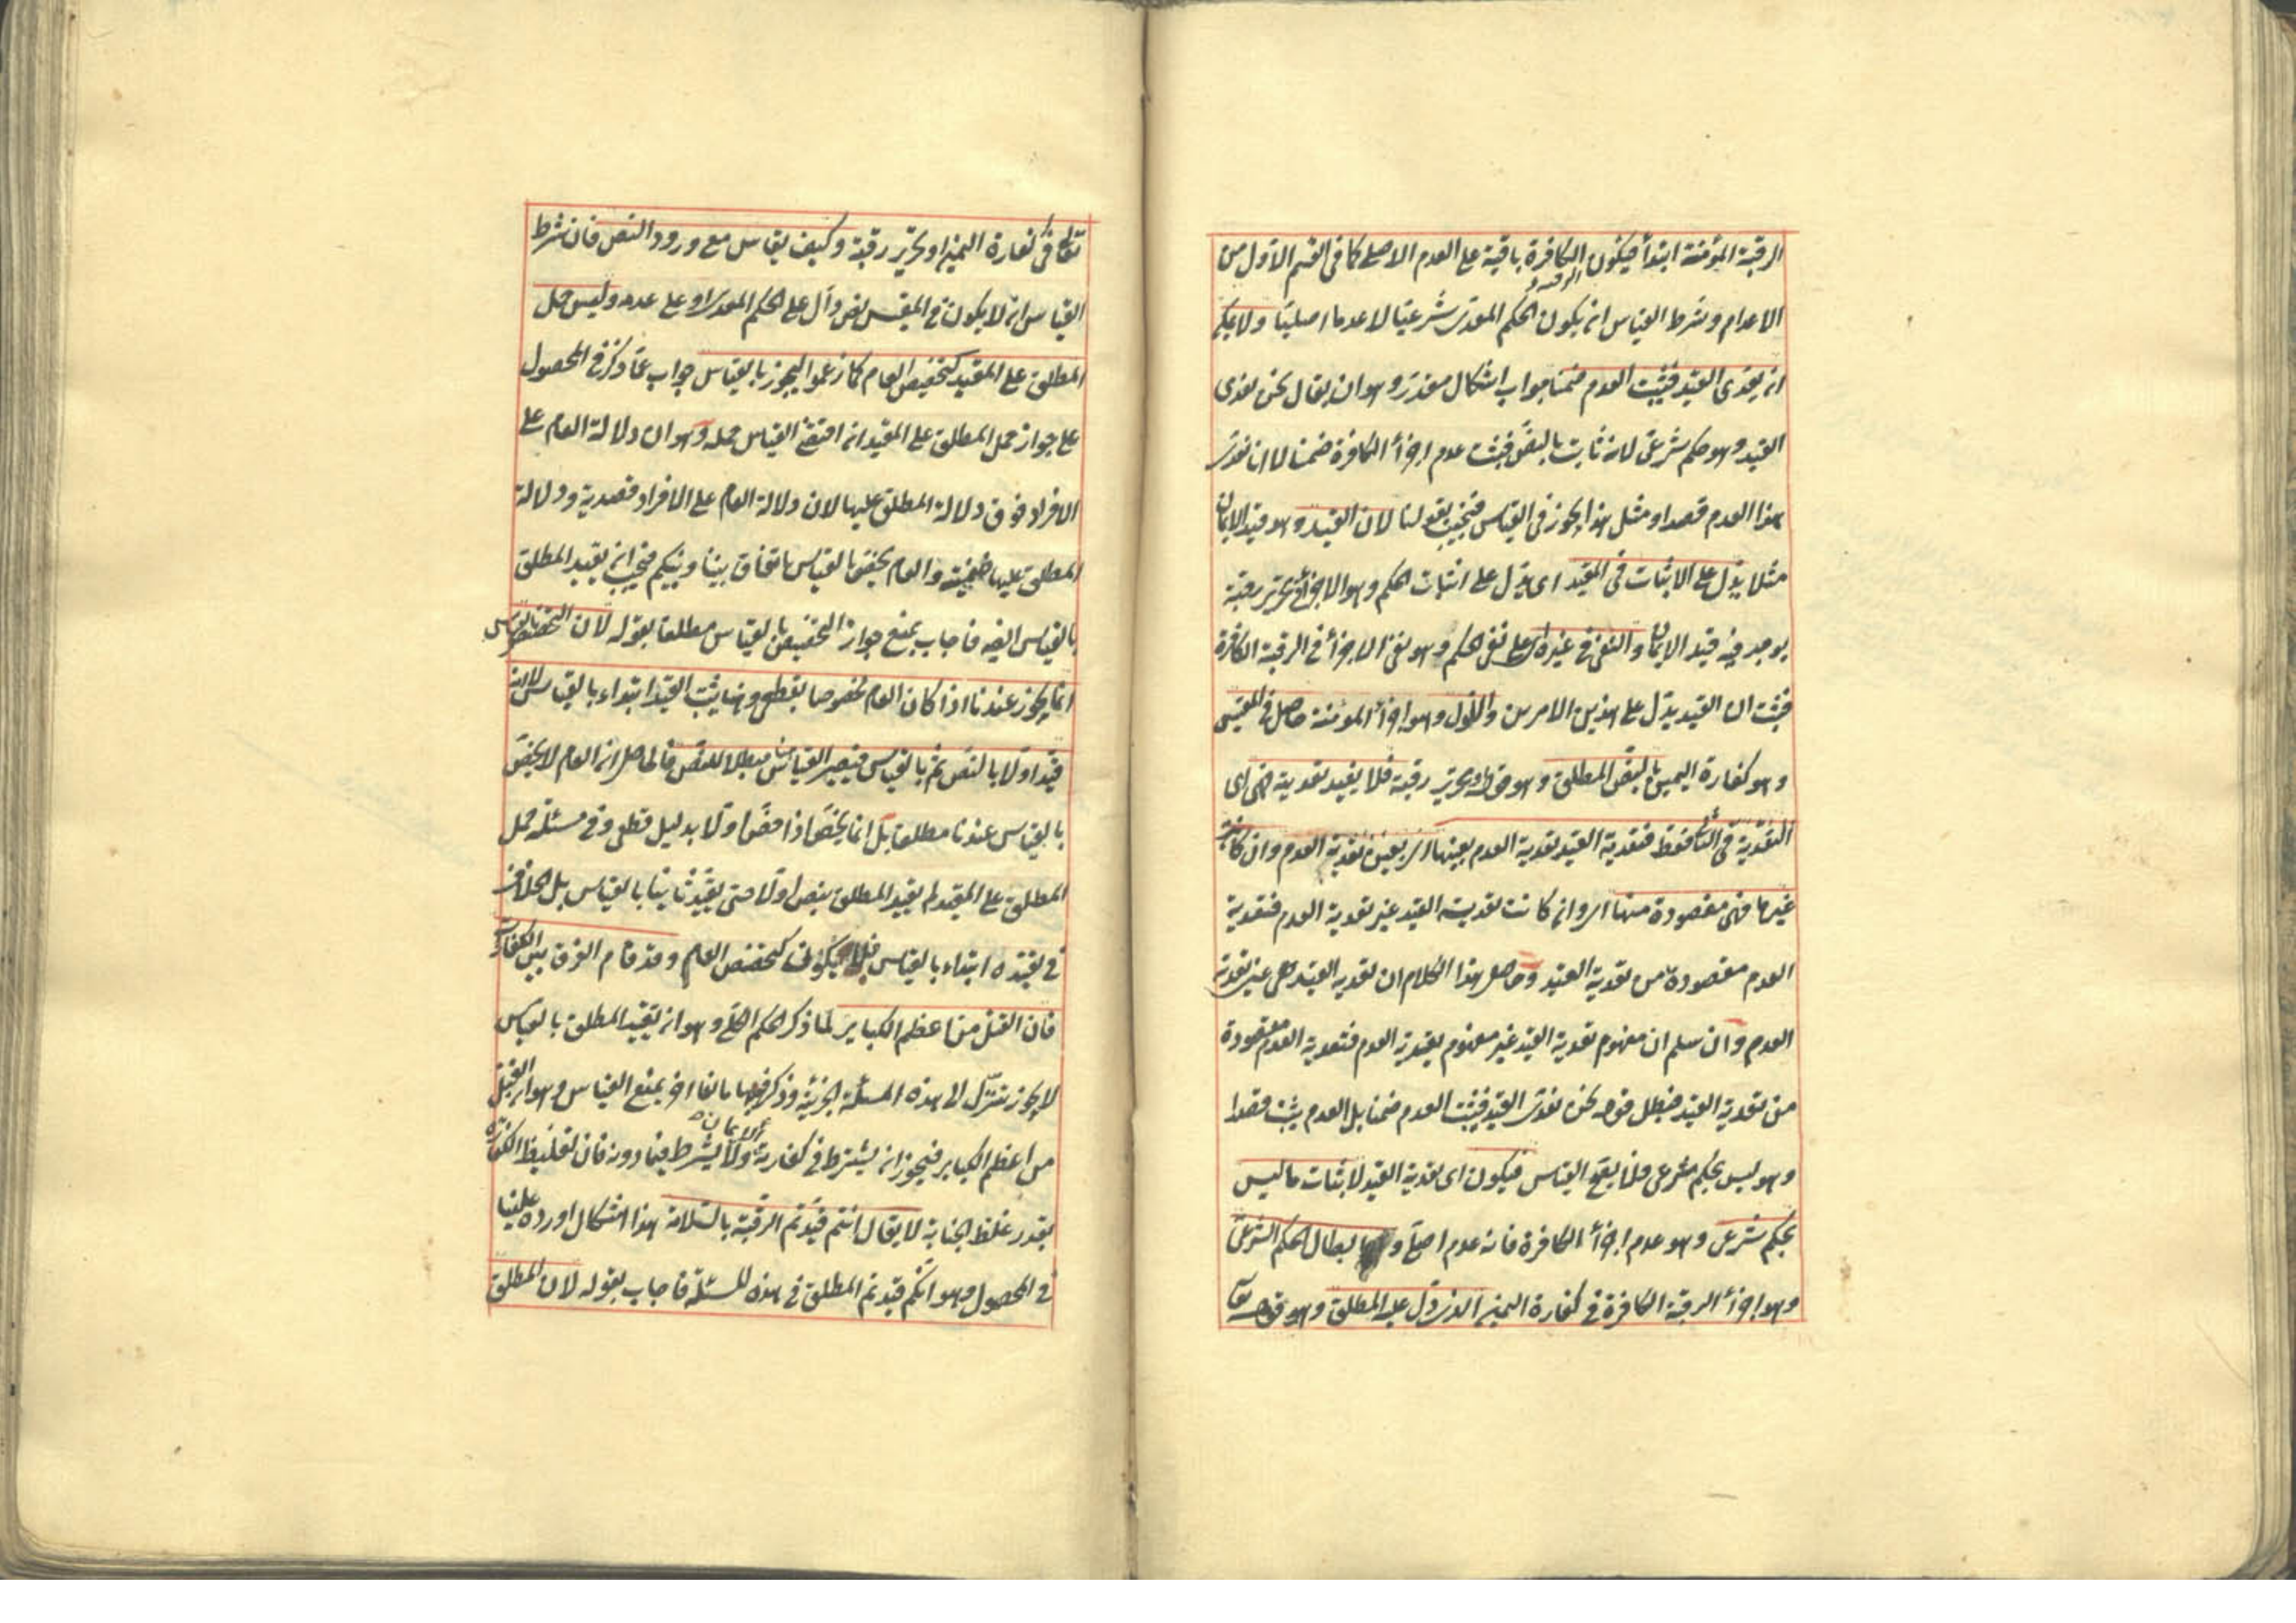 الرقبة المؤمنة ابتدأ فيكون الكافرة باقية على العدم الاصلى كما فى القسم الاول من
الرقبة
الاعدام وشرط القياس ان يكون الحكم المعدى شرعيا لا عدما اصليا ولا يمكن
انه يعدى القيد فيثبت العدم ضمنا جواب اشكال مقدر وهو ان يقال نحن نعدى
القيد وهو حكم شرعى لانه ثابت بالنص فيثبت عدم اجزأ الكافرة ضمنا لا ان نعدى
هذا العدم قصدا ومثل هذا يجوز فى القياس فنجيب بقولنا لان القيد وهو قيد الايمان
مثلا يدل على الاثبات فى المقيد اى يدل على اثبات الحكم وهو الاجزأ فى تحرير رقبة
يوجد فيه قيد الايمان والنفى فى غيره اى على نفى الحكم وهو نفى الاجزأ فى الرقبة الكافرة
فثبت ان القيد يدل على هذين الامرين والاول وهو اجزأ المؤمنة حاصل فى المقيس
وهو كفارة اليمين بالنص المطلق وهو قوله او تحرير رقبة فلا يفيد تعدية فهى اى
التعدية فى الثا فقط فتعدية القيد تعدية العدم بعينها اى بعين تعدية العدم وان كانت
غيرها فهى مقصودة منها اى وان كانت تعدية القيد غير تعدية العدم فتعدية
العدم مقصودة من تعدية القيد وحاصل هذا الكلام ان تعدية القيد هى عين تعدية
العدم وان سلم ان مفهوم تعدية القيد غير مفهوم تعدية العدم فتعدية العدم مقصودة
من تعدية القيد فبطل قوله نحن نعدى القيد فيثبت العدم ضمنا بل العدم يثبت قصدا
وهو ليس بحكم شرعى فلا يصح القياس فيكون اى تعدية القيد لاثبات ما ليس
بحكم شرعى وهو عدم اجزأ الكافرة فانه عدم اصلى و ابطال الحكم الشرعى
وهو اجزأ الرقبة الكافرة فى كفارة اليمين الذى دل عليه المطلق وهو قوله تعا
تعالى فى كفارة اليمين او تحرير رقبة وكيف يقاس مع ورود النص فان شرط
القياس ان لا يكون فى المقيس نص دال على الحكم المعدى او على عدمه وليس حمل
المطلق على المقيد كتخصيص العام كما زعموا ليجوز بالقياس جواب عما ذكر فى المحصول
على جواز حمل المطلق على المقيد ان اقتضى القياس حمله وهو ان دلالة العام على
الافراد فوق دلالة المطلق عليها لان دلالة العام على الافراد قصدية ودلالة
المطلق عليها ضمنية والعام يخص بالقياس باتفاق بيننا وبينكم فيجب ان يقيد المطلق
بالقياس ايضه فاجاب بمنع جواز التخصيص بالقياس مطلقا بقوله لان التخصيص بالقياس
انما يجوز عندنا اذا كان العام مخصوصا بقطعى وهنا يثبت القيد ابتداء بالقياس لا انه
قيد اولا بالنص ثم بالقياس فيصير القياس مبطلا للنص فالحاصل ان العام لا يخص
بالقياس عندنا مطلقا بل انما يخص اذا خص اولا بدليل قطعى وفى مسئلة حمل
المطلق على المقيد لم يقيد المطلق بنص اولا حتى يقيد ثانيا بالقياس بل الخلاف
فى تقييده ابتداء بالقياس فلا يكون كتخصيص العام وقد قام الفرق بين الكفارات
فان القتل من اعظم الكباير لما ذكر الحكم الكلى وهو ان تقييد المطلق بالقياس
لا يجوز تنزل الى هذه المسئلة الجزئية وذكر فيها مانعا اخر يمنع القياس وهو ان القتل
الايمان
من اعظم الكباير فيجوز ان يشترط فى كفارته ولا يشترط فيما دونه فان تغليظ الكفارة
بقدر غلظ الجناية لا يقال انتم قيدتم الرقبة بالسلامة هذا اشكال اورده علينا
فى المحصول وهو انكم قيدتم المطلق فى هذه المسئلة فاجاب بقوله لان المطلق